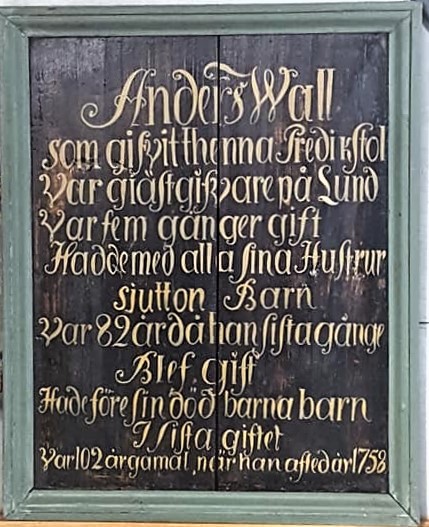 Anders Wall
som gifvit thenna Predikstol
Var giästgifvare på Lund
Var fem gånger gift
Hadde med alla sina Hustrur
sjutton Barn
Var 82 år då han sista gånge
Blef gift
Hade före sin död barna barn
I sista giftet
Var 102 år gamal, när han afled år 1758